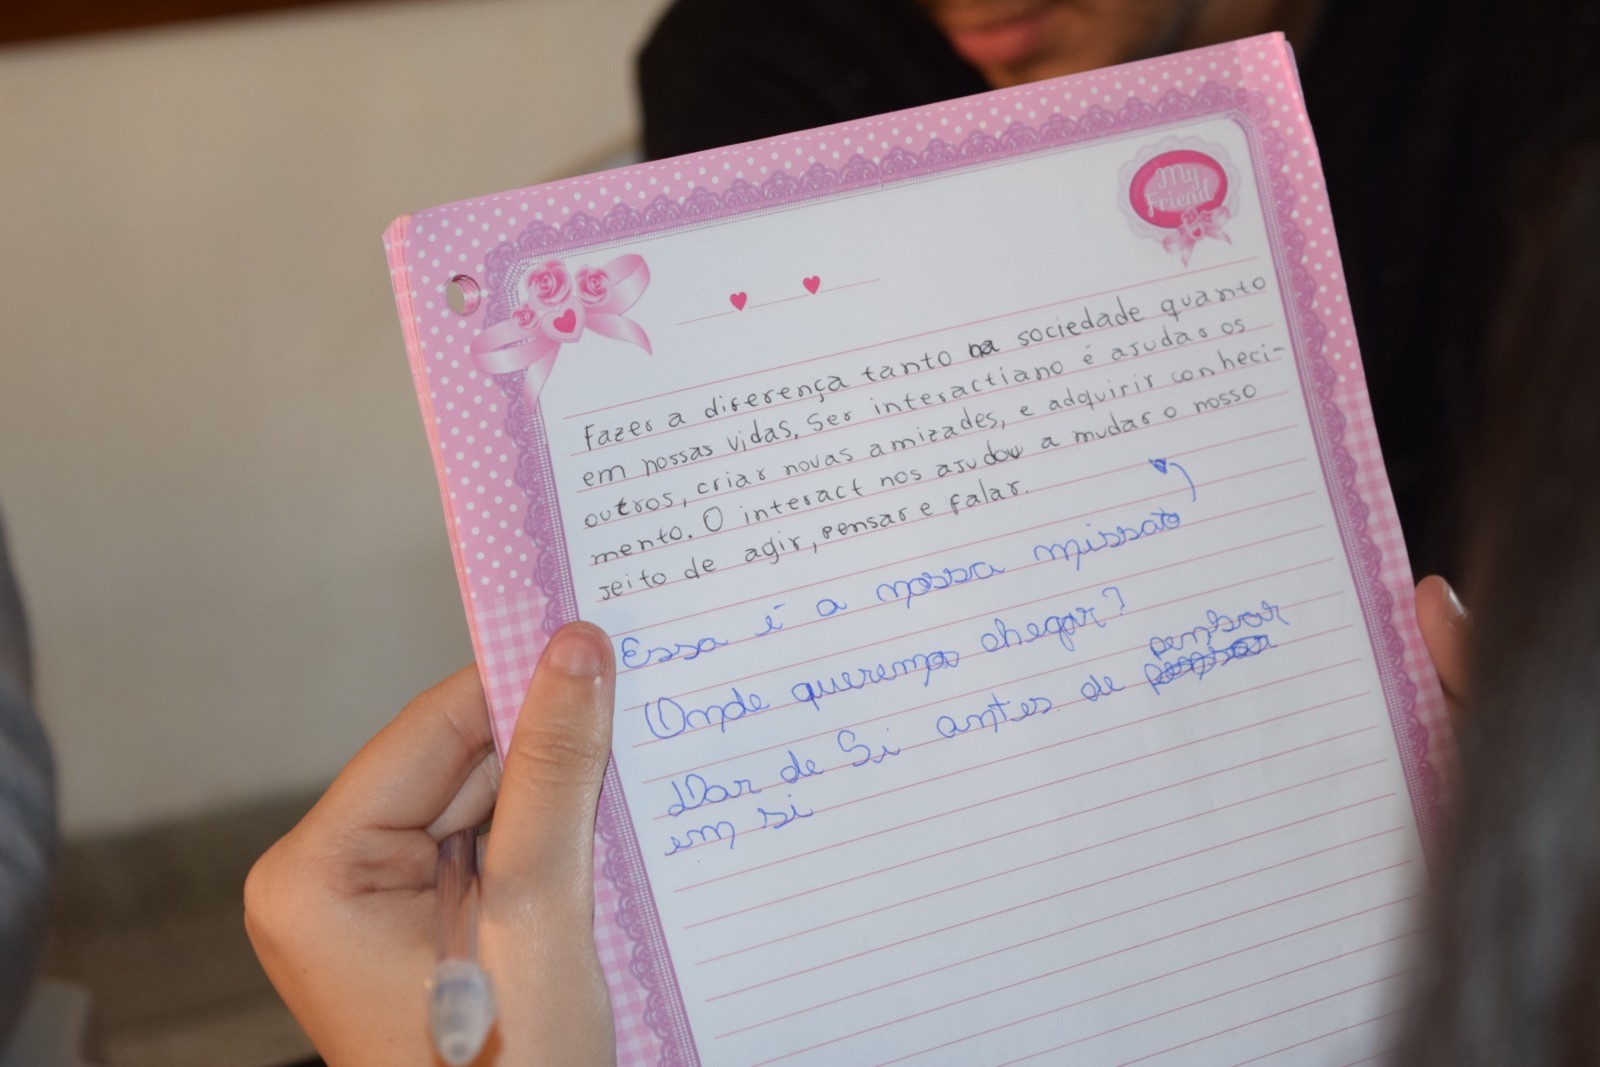 My
Friend
Fazer a diferença tanto na sociedade quanto
em nossas vidas. Ser interactiano é ajudar os
outros, criar novas amizades, e adquirir conheci-
mento. O interact nos ajudou a mudar o nosso
jeito de agir, pensar e falar.
Essa é a nossa missão
Onde queremos chegar?
Dar de Si antes de pensar
em si